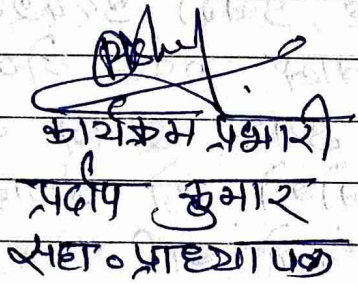 कार्यक्रम प्रभारी
प्रदीप कुमार
सहा० प्राध्यापक